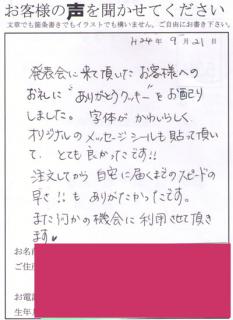 お客様の声を聞かせてください
文章でも箇条書きでもイラストでも構いません。ご自由にお書き下さい。
H24年 9月21日
発表会に来て頂いたお客様への
お礼に"ありがとうクッキー"をお配り
しました。字体がかわいらしく
オリジナルのメッセージシールも貼って頂い
て、とても良かったです!!
注文してから自宅に届くまでのスピードの
早さ!!も ありがたかったです。
また何かの機会に利用させて頂き
ます♥
お名
ご住
お電
生年